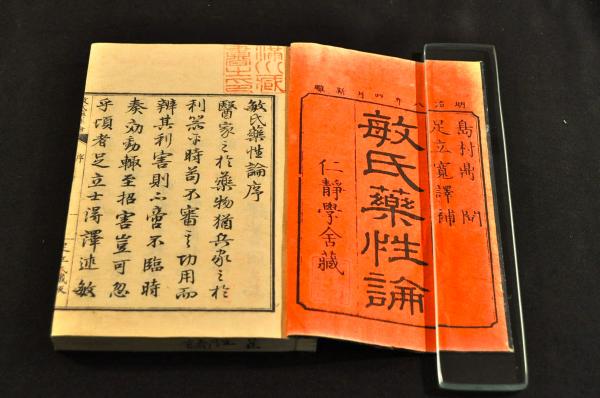 明治八年四月新雕
島村鼎閲
足立寛譯補
敏氏藥性論
仁靜學舍藏
敏氏藥性論序
醫家之於藥物猶兵家之於
利器平時苟不審其功用而
辨其利害則不啻不臨時
奏効動輒至招害豈可忽
乎頃者足立士得譯述敏